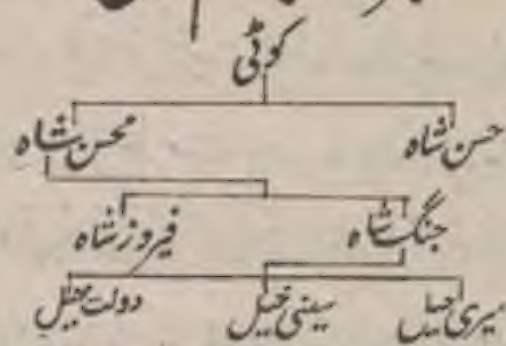 کوٹی
حسن شاہ محسن شاہ
جنگ شاہ فیروز شاہ
میری خیل سینی خیل دولت خیل